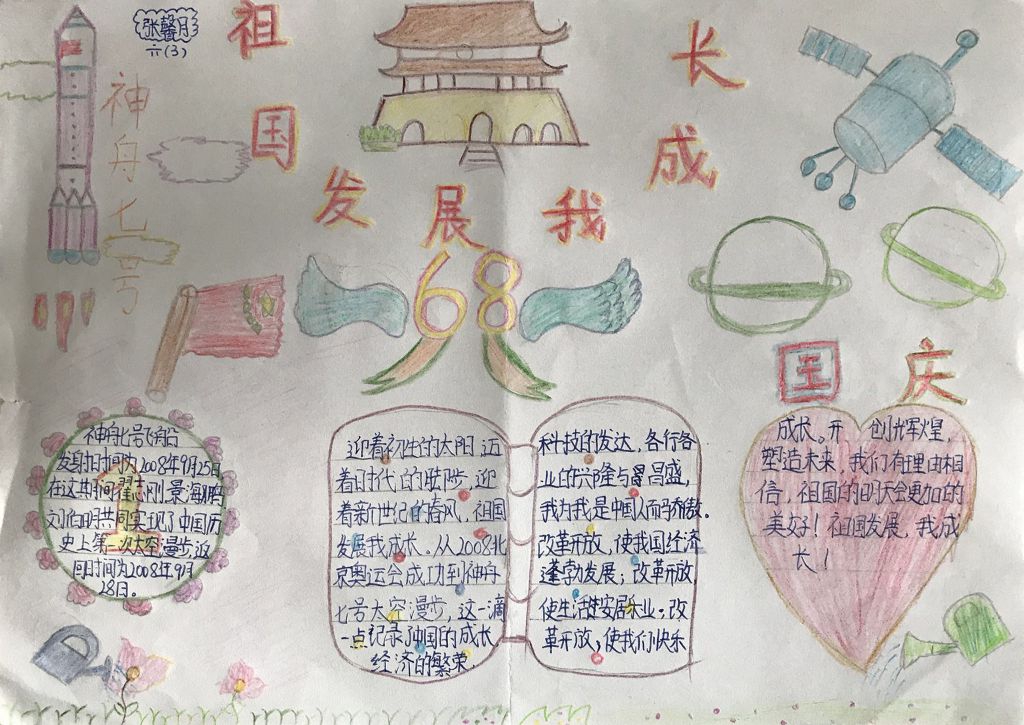 张馨月
六(3)
祖国发展我成长
神舟七号
68
国庆
神舟七号飞船
发射时间为2008年9月25日
在这其间翟志刚.景海鹏
刘伯明共同实现了中国历
史上第一次太空漫步返
回时间为2008年9月
28日。
迎着初生的太阳,迈
着时代的脚步,迎
着新世纪的春风,祖国
发展我成长。从2008北
京奥运会成功到神舟
七号太空漫步,这一滴
一点记录了中国的成长
经济的繁荣
科技的发达,各行各
业的兴隆与昌盛,
我为我是中国人而骄傲。
改革开放,使我国经济
蓬勃发展;改革开放
使生活安居乐业;改
革开放,使我们快乐
成长。开创辉煌,
塑造未来,我们有理由相
信,祖国的明天会更加的
美好!祖国发展,我成
长!